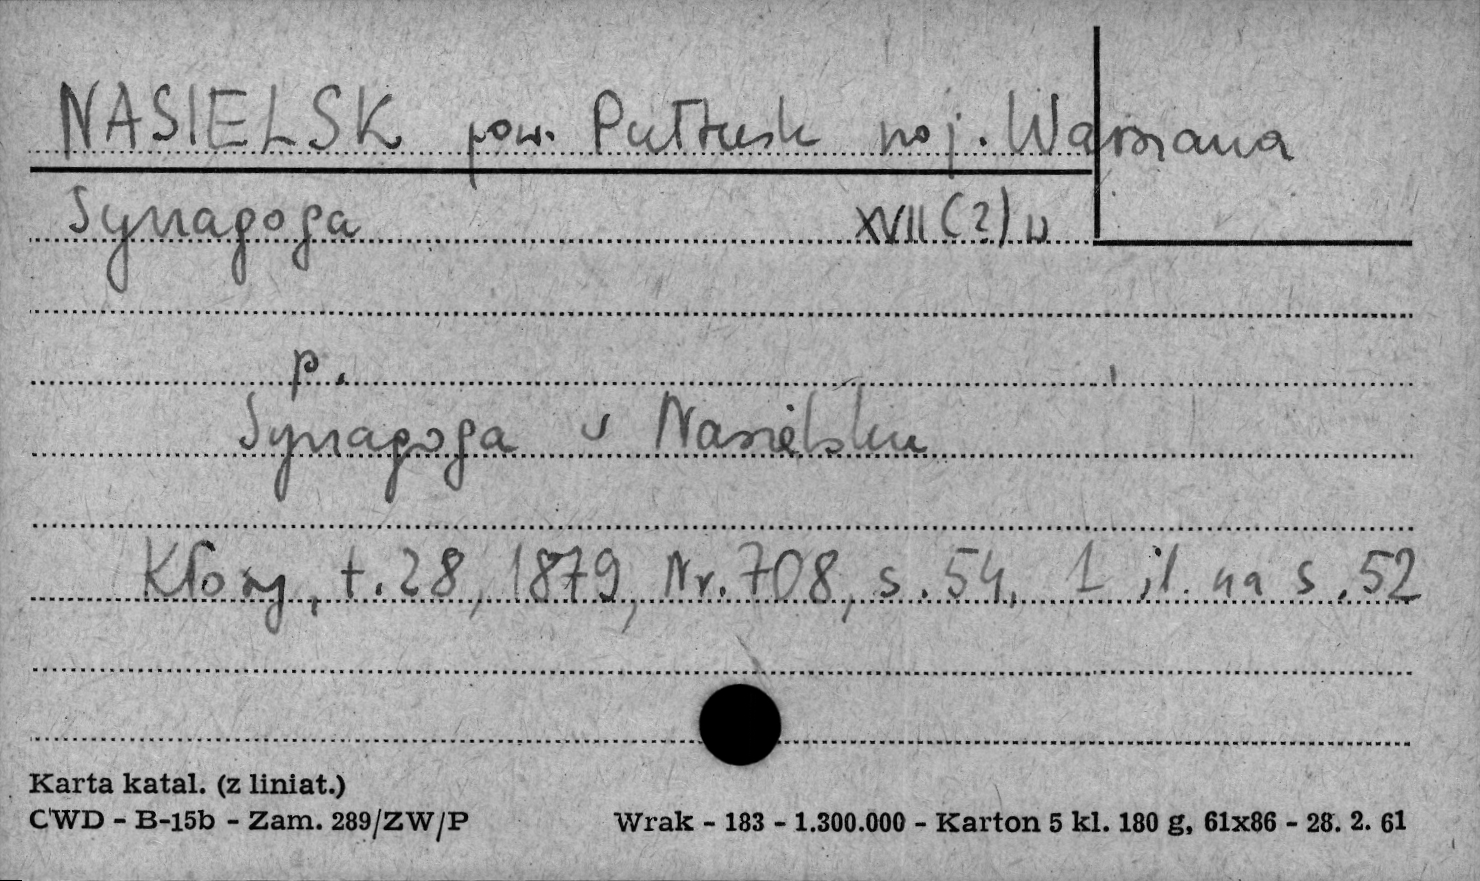 NASIELSK pow. Pułtusk woj. Warszawa
Synagoga XVII (?) w
p.
Synagoga w Nasielsku
Kłosy, t. 28, 1879, Nr. 708, s. 54, 1 il. na s. 52
Karta katal. (z liniat.)
CWD - B-15b - Zam. 289/ZW/P Wrak - 183 - 1.300.000 - Karton 5 kl. 180 g, 61x86 - 28. 2. 61